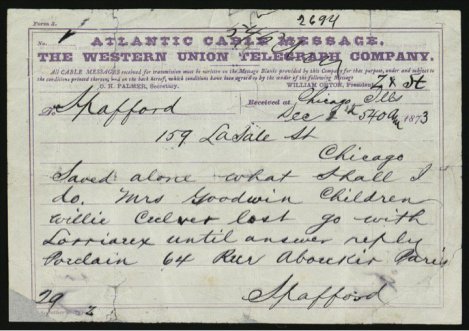 Form 2.
2694
No.
ATLANTIC CABLE MESSAGE.
THE WESTERN UNION TELEGRAPH COMPANY.
All CABLE MESSAGES received for transmission must be written on the Message Blanks provided by this Company for that purpose, under and subject to
the conditions printed thereon and on the back hereof, which conditions have been agreed to by the sender of the following Message
O. H. PALMER, Secretary. WILLIAM ORTON, President.
Received at Chicago Ills
Dec 1873
To Spafford
159 LaSale St
Chicago
Saved alone what shall I
do. Mrs Goodwin Children
Willie Culver lost go with
Lorriaux until answer reply
Porclain 64 Rue Aboukir Paris
Spafford
29